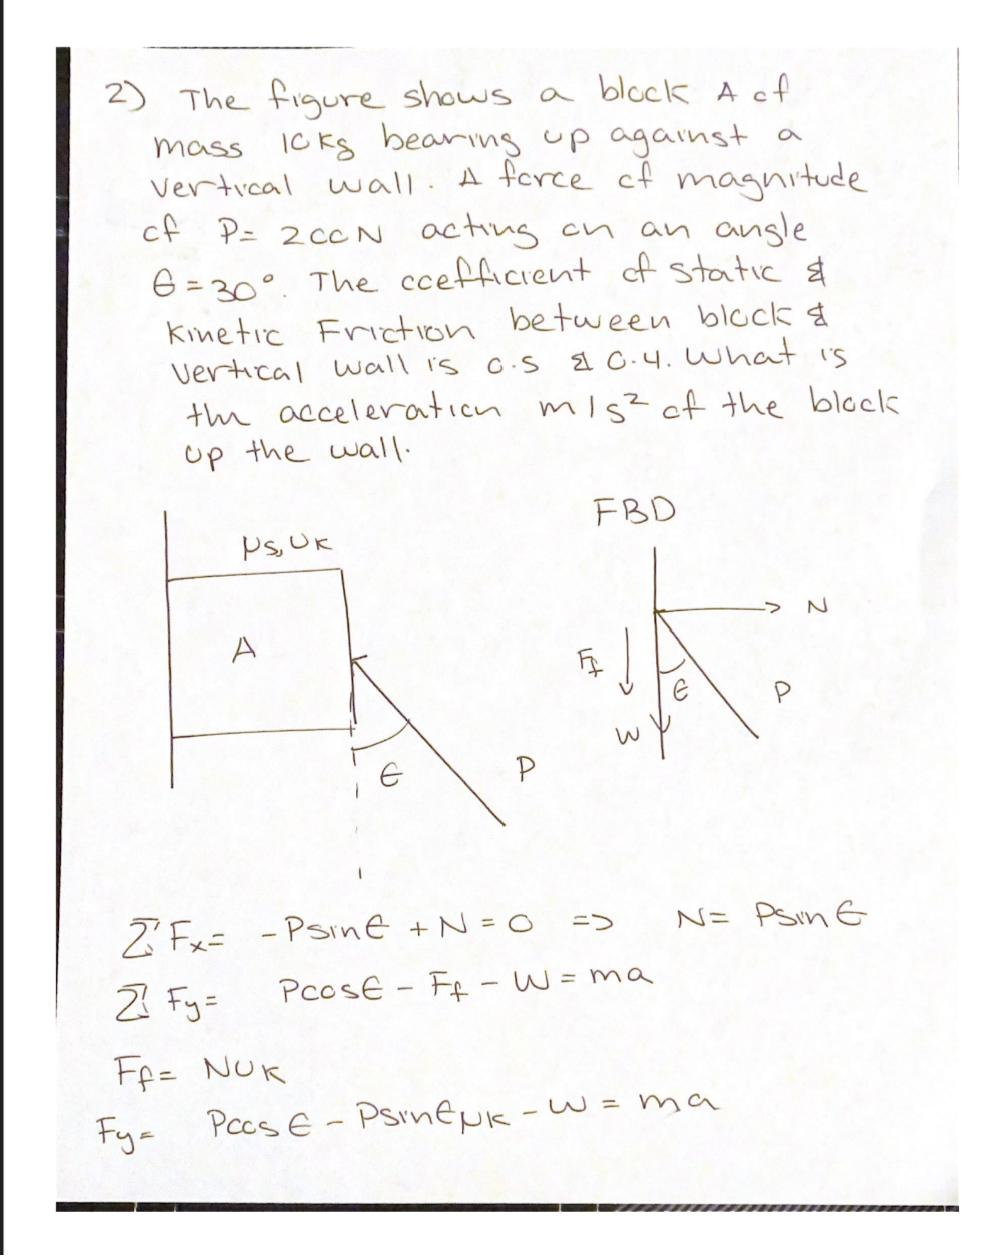 2) The figure shows a block A of
mass 10kg bearing up against a
vertical wall. A force of magnitude
of P= 200N acting on an angle
θ=30°. The coefficient of static &
Kinetic Friction between block &
vertical wall is 0.5 & 0.4. What is
the acceleration m/s² of the block
up the wall.
FBD
μs, Uk
N
A
Ff
θ
P
W
θ
P
ΣFx= -Psinθ + N = 0 => N= Psinθ
Σ Fy= Pcosθ - Ff - W = ma
Ff= NUK
Fy= Pcosθ - Psinθμk - W = ma